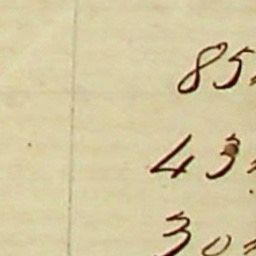 85
43
30